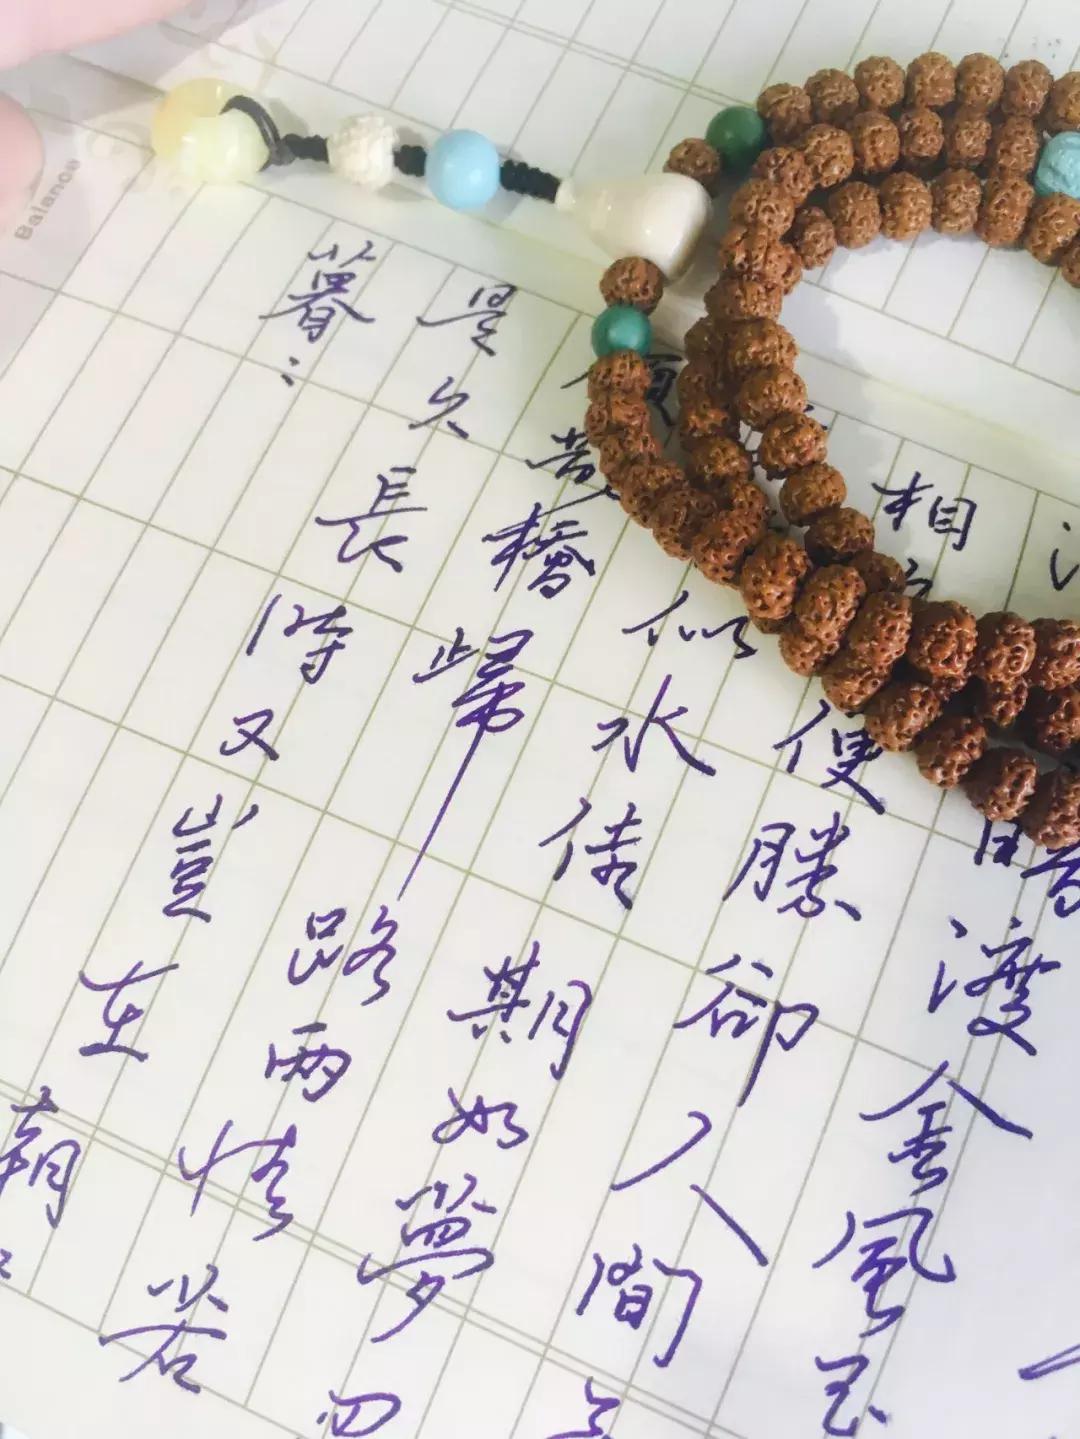 暗渡金風玉
相便勝卻人間
似水佳期如夢
橋歸路兩情若
是久長時又豈在朝
暮:
Balance